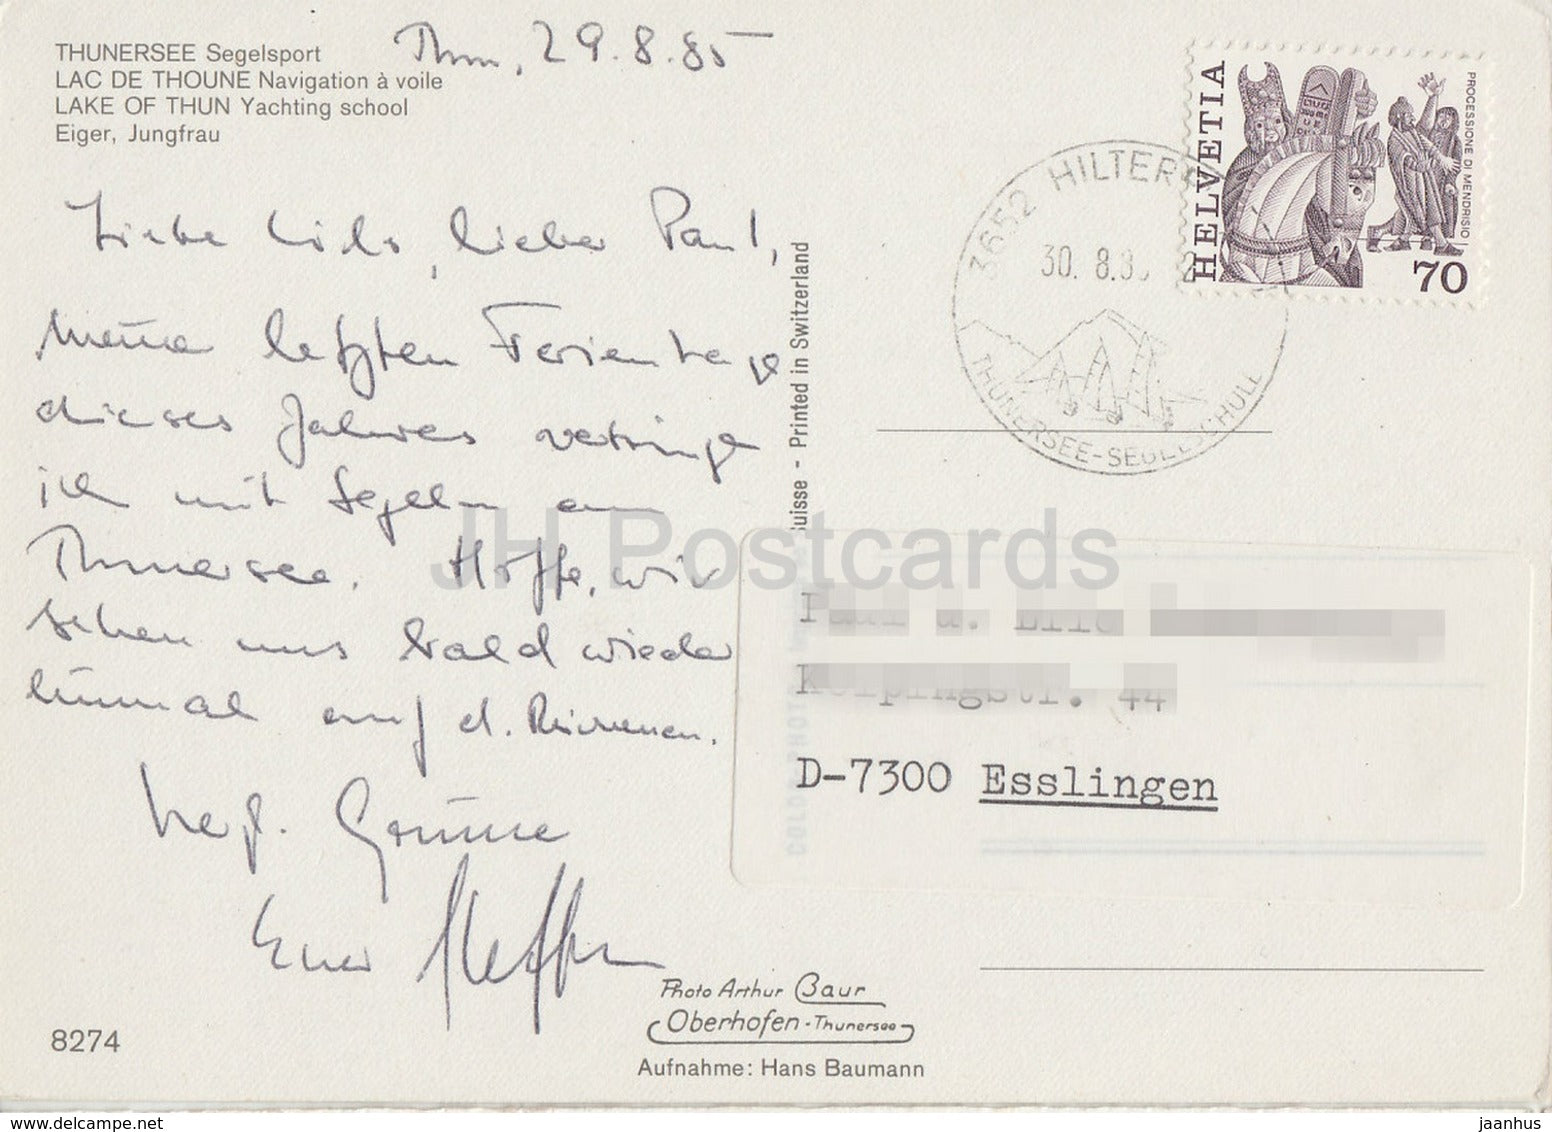 THUNERSEE Segelsport
LAC DE THOUNE Navigation à voile
LAKE OF THUN Yachting school
Eiger, Jungfrau
Thun, 29.8.85
Liebe, lieber Paul,
meine letzten Ferientage
dieses Jahres verbringe
ich mit Segeln am
Thunersee. Hoffe, wir
sehen uns bald wieder
einmal auf d.
Grüsse
Euer Steffen
8274
Photo Arthur Baur
Oberhofen-Thunersee
Aufnahme: Hans Baumann
uisse - Printed in Switzerland
3652 HILTER
30. 8.8
THUNERSEE-SEGELSCHULE
HELVETIA
PROCESSIONE DI MENDRISIO
70
44
D-7300 Esslingen
JH Postcards
www.delcampe.net
jaanhus